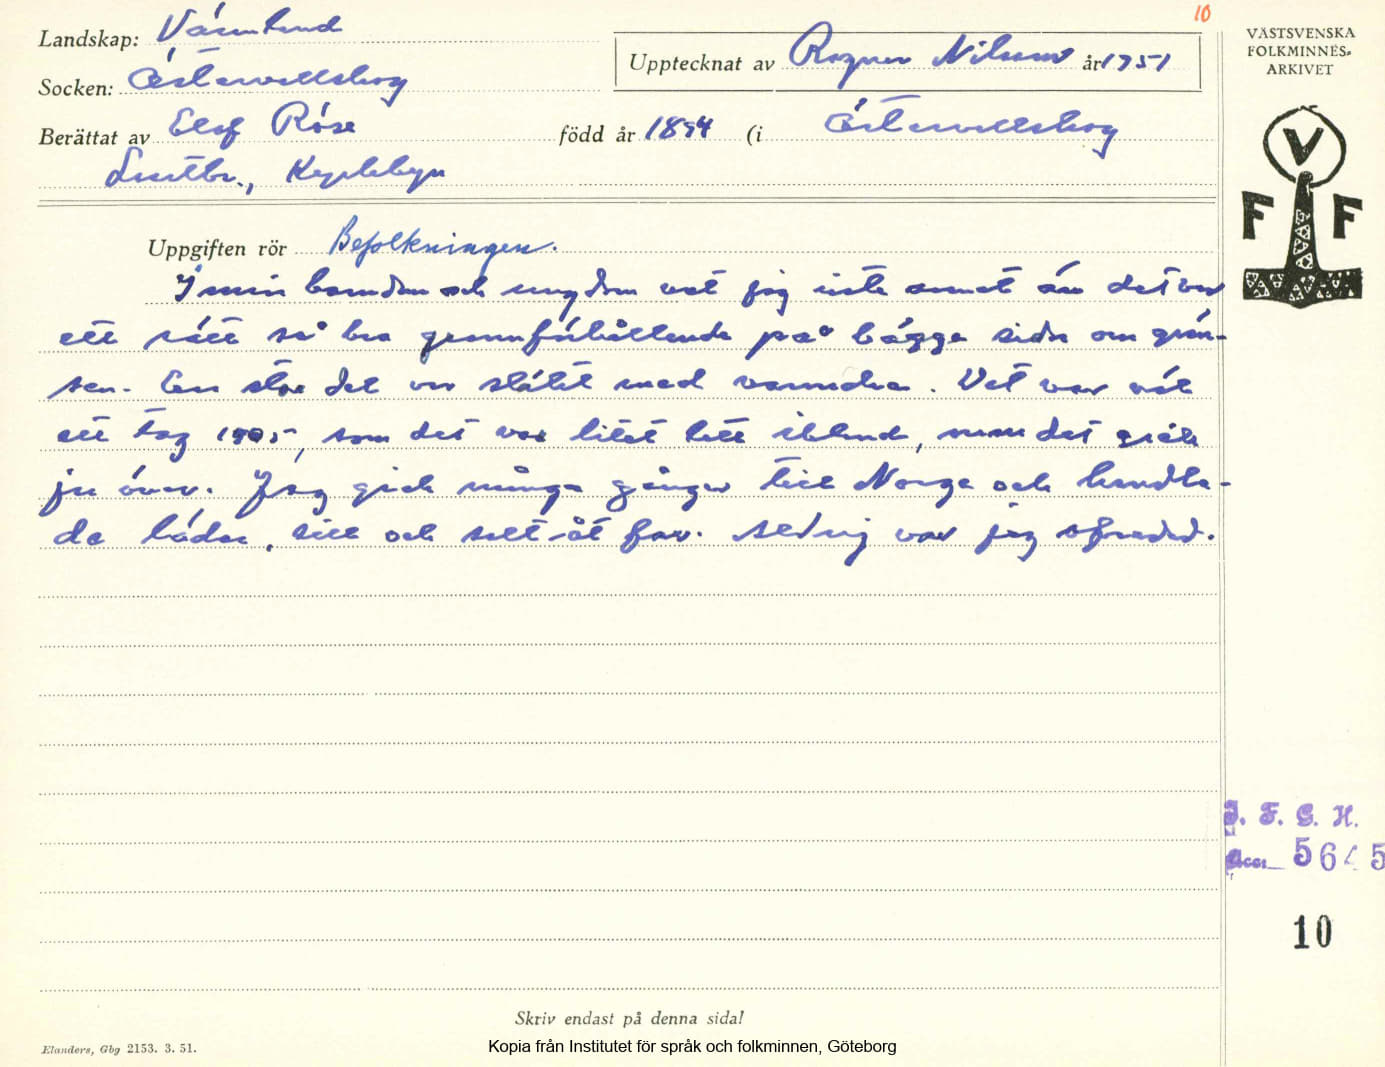 10
Landskap: Värmland
Socken: Östervallskog
Upptecknat av Ragnar Nilsson år 1951
Berättat av Elof Röse född år 1894 (i Östervallskog
Lantbr.,
Uppgiften rör Befolkningen.
I min barndom och ungdom vet jag inte annat än det var
ett rätt så bra grannförhållande på bägge sidor om grän-
sen. En stor del var släkt med varandra. Det var väl
ett tag 1905, som det var litet hett ibland, men det gick
ju över. Jag gick många gånger till Norge och handla-
de läder, sill och salt åt far. Aldrig var jag ofredad.
VÄSTSVENSKA
FOLKMINNES-
ARKIVET
V
F F
I. F. G. H.
Acc. 5645
10
Skriv endast på denna sida!
Elanders, Gbg 2153. 3. 51.
Kopia från Institutet för språk och folkminnen, Göteborg